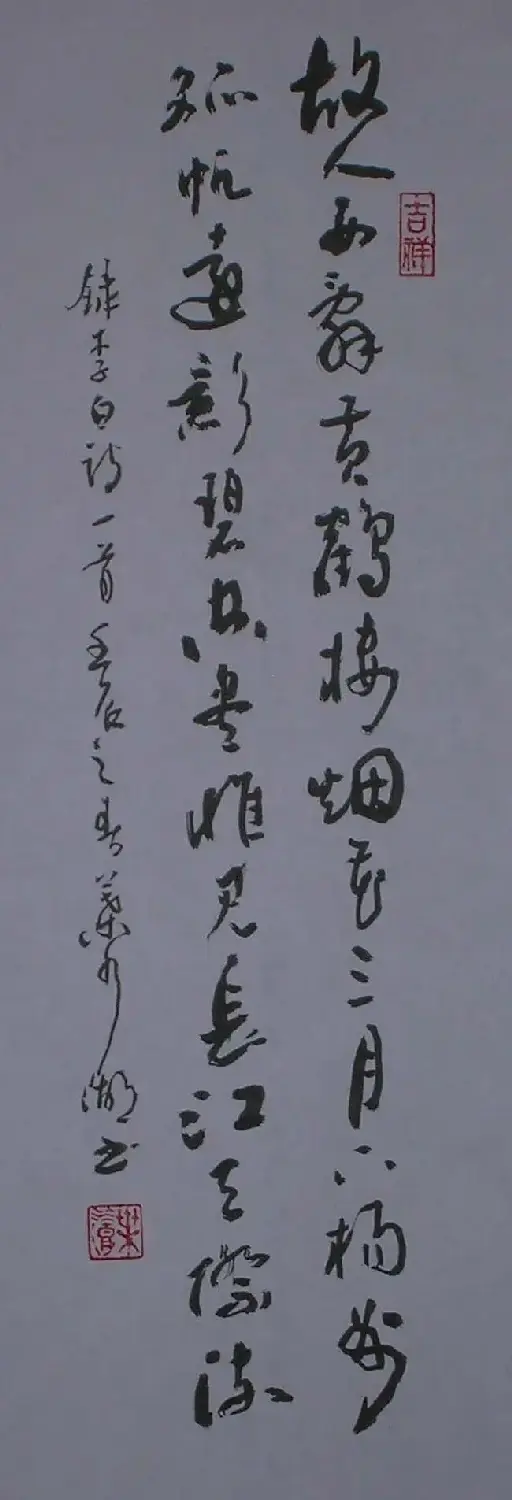 吉祥
故人西辭黃鶴樓烟花三月下楊州
孤帆遠影碧山盡惟見長江天際流
錄李白詩一首壬辰之春葉湖書